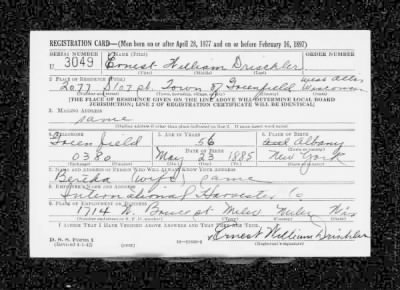 REGISTRATION CARD—(Men born on or after April 28, 1877 and on or before February 16, 1897)
SERIAL NUMBER 1. NAME (Print) ORDER NUMBER
U 3049 Ernest William Drischler
(First) (Middle) (Last)
2. PLACE OF RESIDENCE (Print) West Allis
2077 S 107 st. Town of Greenfield Wisconsin
(Number and street) (Town, township, village, or city) (County) (State)
[THE PLACE OF RESIDENCE GIVEN ON THE LINE ABOVE WILL DETERMINE LOCAL BOARD
JURISDICTION; LINE 2 OF REGISTRATION CERTIFICATE WILL BE IDENTICAL]
3. MAILING ADDRESS
same
[Mailing address if other than place indicated on line 2. If same insert word same]
4. TELEPHONE 5. AGE IN YEARS 6. PLACE OF BIRTH
Greenfield 56 East Albany
DATE OF BIRTH
0380 May 23 1885 New York
(Exchange) (Number) (Mo.) (Day) (Yr.) (State or country)
7. NAME AND ADDRESS OF PERSON WHO WILL ALWAYS KNOW YOUR ADDRESS
(wife) same
8. EMPLOYER'S NAME AND ADDRESS
International Harvester Co
9. PLACE OF EMPLOYMENT OR BUSINESS
1714 W. st Milw Milw Wis
(Number and street or R. F. D. number) (Town) (County) (State)
I AFFIRM THAT I HAVE VERIFIED ABOVE ANSWERS AND THAT THEY ARE TRUE.
D. S. S. Form 1
(Revised 4-1-42) Ernest William Drischler
(Registrant's signature)